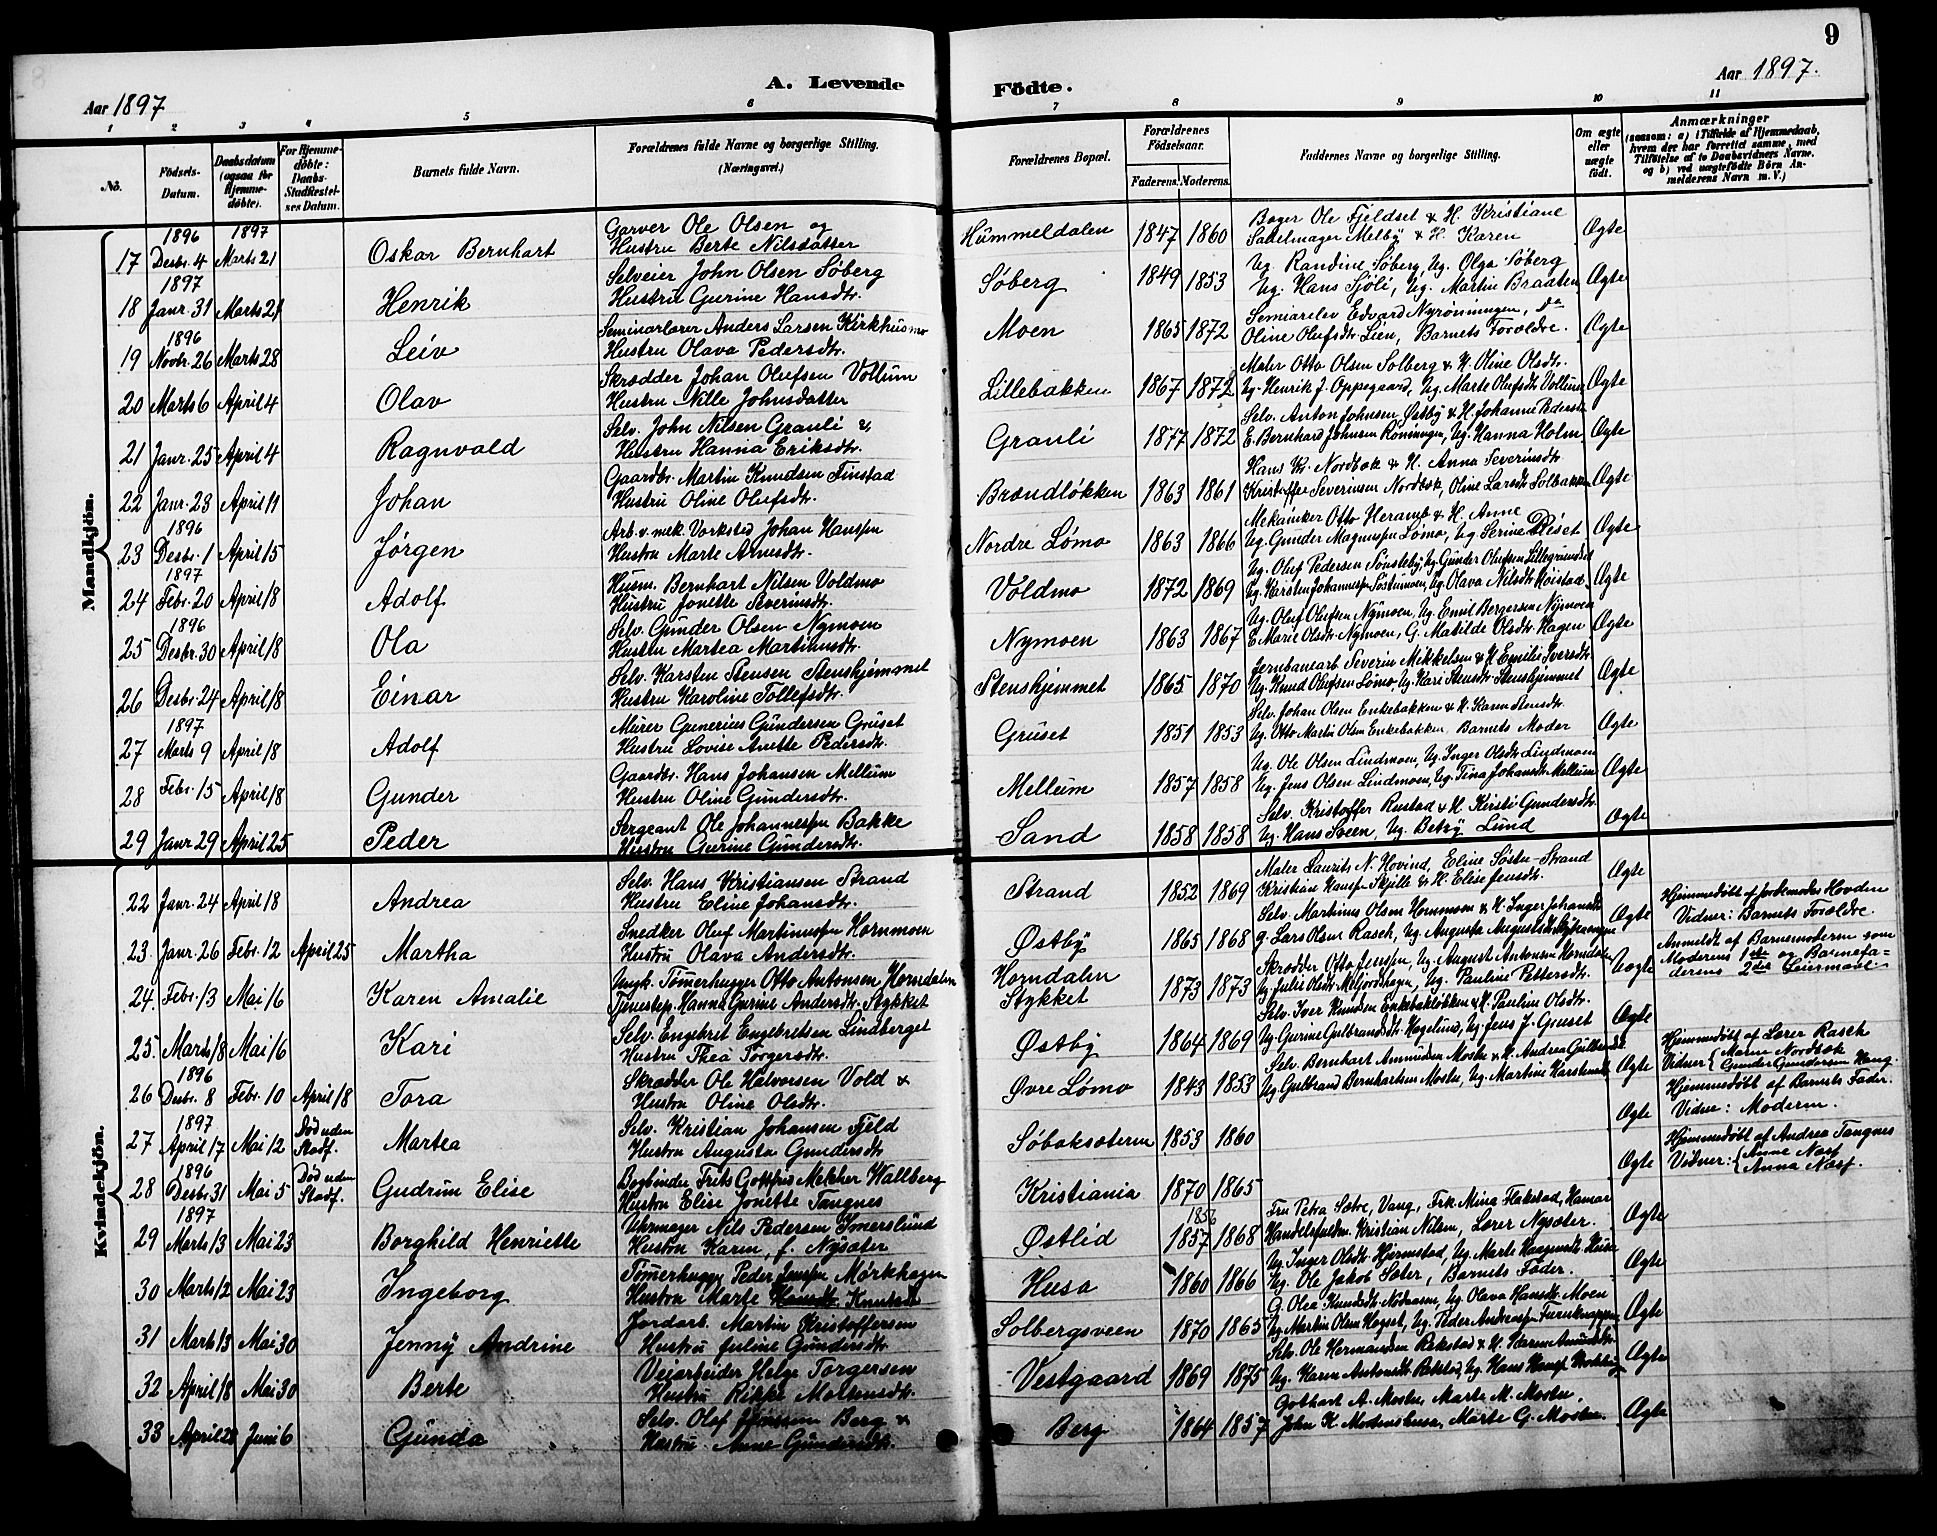 9
A. Levende
Födte.
Aar 1897
Aar 1897.
1 2 3 4 5 6 7 8 9 10 11
No.
Födsels-Datum.
Daabsdatum (ogsaa for Hjemme-döbte).
For Hjemme-döbte: Daabs-Stadfæstel-ses Datum.
Barnets fulde Navn.
Forældrenes fulde Navne og borgerlige Stilling. (Næringsvei.)
Forældrenes Bopæl.
Forældrenes Födselsaar.
Faderens. Moderens.
Faddernes Navne og borgerlige Stilling.
Om ægte eller uægte födt.
Anmærkninger
(saasom: a) i Tilfælde af Hjemmedaab, hvem der har forrettet samme, med Tilföielse af to Daabsvidners Navne. og b) ved uægtefödte Börn An-melderens Navn m. V.)
Mandkjön.
1896 1897 Garver Ole Olsen og Bager Ole Fjeldset & H. Kristiane
17 Desbr. 4 Marts 21 Oskar Bernhart Hustru Berte Nilsdatter Hummeldalen 1847 1860 Sadelmager Melby & H. Karen Ægte
1897 Selveier John Olsen Søberg Ug. Randine Søberg, Ug. Olga Søberg
18 Janr. 31 Marts 21 Henrik Hustru Gurine Hansdtr. Søberg 1849 1853 Ug. Hans Sjöli, Ug. Martin Braaten Ægte
1896 Seminarlærer Anders Larsen Kirkhusmo Semiarelev Edvard Nyrönningen, Da
19 Novbr. 26 Marts 28 Leiv Hustru Olava Pedersdtr. Moen 1865 1872 Oline Olufsdtr Lien, Barnets Forældre. Ægte
Skrædder Johan Olufsen Vollum Maler Otto Olsen Solberg & H. Oline Olsdtr.
20 Marts 6 April 4 Olav Hustru Nille Johnsdatter Lillebakken 1867 1872 Ug. Henrik J. Oppegaard, Ug. Marte Olufsdtr Vollum Ægte
Selv. John Nilsen Granli & Selv. Anton Johnsen Østby & H. Johanne Pedersdtr
21 Janr. 25 April 4 Ragnvald Hustru Hanna Eriksdtr. Granli 1877 1872 E. Bernhard Johnsen Röningen, Ug. Hanna Holm Ægte
Gaardbr. Martin Knudsen Finstad Hans Kr. Nordbæk & H. Anna Severinsdtr.
22 Janr. 23 April 11 Johan Hustru Oline Olufsdtr. Brændløkken 1863 1861 Kristoffer Severinsen Nordbæk, Oline Larsdtr Solbakken Ægte
1896 Arb. v. mek. Værksted Johan Hanssen Mekaniker Otto Heramb & H. Anne
23 Desbr. 1 April 15 Jørgen Hustru Marte Arnesdtr. Nordre Lømo 1863 1866 Ug. Gunder Magnussen Lømo, Ug. Serine Diset Ægte
1897 Husm. Bernhart Nilsen Voldmo Ug. Oluf Pedersen Sønsteby, Ug. Gunder Olufsen Lillegrundset
24 Febr. 20 April 18 Adolf Hustru Jonette Severinsdtr. Voldmo 1872 1869 Ug. Karsten Johannessen Søstumoen, Ug. Olava Nilsdtr Røistad Ægte
1896 Selv. Gunder Olsen Nymoen Ug. Oluf Olufsen Nymoen, Ug. Emil Bergersen Nymoen
25 Desbr. 30 April 18 Ola Hustru Martea Martinusdtr. Nymoen 1863 1867 E. Marie Olsdtr Nymoen, G. Matilde Olsdtr. Hagen Ægte
Selv. Karsten Stensen Stenshjemmet Jernbanearb Severin Mikkelsen & H. Emilie Iversdtr
26 Desbr. 24 April 18 Einar Hustru Karoline Tollefsdtr. Stenshjemmet 1865 1870 Ug. Knud Olufsen Lømo, Ug. Kari Stensdtr. Stenshjemmet Ægte
1897 Murer Gunerius Gundersen Grüset Selv. Johan Olsen Enkebakken & H. Karen Stensdtr.
27 Marts 9 April 18 Adolf Hustru Lovise Anette Pedersdtr. Grüset 1851 1853 Ug. Otto Martin Olsen Enkebakken. Barnets Moder Ægte
Gaardbr. Hans Johansen Mellum Ug. Ole Olsen Lindmoen, Ug. Inger Olsdtr Lindmoen
28 Febr. 15 April 18 Gunder Hustru Oline Gundersdtr. Mellum 1857 1858 Ug. Jens Olsen Lindmoen, Ug. Tina Johansdtr. Mellum Ægte
Sergeant Ole Johannessen Bakke Selv. Kristoffer Rustad & H. Kirsti Gundersdtr.
29 Janr 29 April 25 Peder Hustru Gurine Gundersdtr. Sand 1858 1858 Ug. Hans Sveen, Ug. Betsy Lund Ægte
Kvindekjön.
Selv. Hans Kristiansen Strand Maler Laurits N. Hovind, Eline Søstu-Strand
22 Janr. 24 April 18 Andrea Hustru Eline Johansdtr. Strand 1852 1869 Kristian Hansen Skjille & H. Elise Jensdtr. Ægte
Snedker Oluf Martinussen Hornmoen Selv. Martinus Olsen Hornmoen & H. Inger Johansdtr Hjemmedöbt af Jordemoder Hovden
23. Janr. 26 Febr. 12 April 25 Martha Hustru Olava Andersdtr. Østby 1865 1868 G. Lars Olsen Rasch, Ug. Augusta Ægte Vidner: Barnets Forældre.
Ungk. Tömerhugger Otto Antonsen Horndalen Skrædder Otto Jenssen, Ug. August Antonsen Horndalen Anmeldt af Barnemoderen som
24. Febr. 13 Mai 16 Karen Amalie Tjenestep. Hanna Gurine Andersdtr. Stykket Horndalen Stykket 1873 1873 Ug. Julie Olsdtr Meljordshagen, Ug. Pauline Pettersdtr. Uægte Moderens 1ste og Barnefaderens 2det Leiermaal.
Selv. Engebret Engebretsen Lindberget Selv. Iver Knudsen Enkebakløkken & H. Pauline Olsdtr.
25. Marts 18 Mai 16 Kari Hustru Thea Torgersdtr. Østby 1864 1869 Ug. Gurine Gulbrandsdtr. Hagelund, Ug. Jens J. Gruset Ægte
1896 Skrædder Ole Halvorsen Vold & Selv. Bernhart Amundsen Mostu & H. Andrea Gulbrandsd Hjemmedöbt af Lærer Rasch
26 Desbr. 8 Febr. 10 April 18 Tora Hustru Oline Olsdtr. Øvre Lømo 1843 1853 Ug. Gulbrand Bernhartsen Mostu, Ug. Martine Karstensdtr Ægte Vidner { Marne Nordbæk Gunder Gundersen Haug.
1897 Selv. Kristian Johansen Fjeld Hjemmedöbt af Barnets Fader.
27 April 17 Mai 12 Död uden Stadf. Martea Hustru Augusta Gundersdtr Søbaksæteren 1853 1860 Ægte Vidner: Moderen.
1896 Bogbinder Frits Gottfris Melcher Wallberg Hjemmedöbt af Andrea Tangnes
28 Desbr. 31 Mai 5 Död uden Stadf. Gudrun Elise Hustru Elise Jonette Tangnes Kristiania 1870 1865 Ægte Vidner: { Anne Næss Anna Næss.
1897 Uhrmager Nils Pedersen Imerslund 1856 Fru Petra Sætre, Vang, Frk. Mina Flakstad, Hamar
29 Marts 13 Mai 23 Borghild Henriette Hustru Karen, f. Nysæter Østlid 1857 1868 Handelsfuldm. Kristian Nilsen, Lærer Nysæter. Ægte
Tömerhugger Peder Jenssen Mörkhagen Ug. Inger Olsdtr. Hjermstad, Ug. Marte Haagensdtr. Husa
30 Marts 12 Mai 23 Ingeborg Hustru Marte Hansdtr Knutsdtr Husa 1860 1866 Ug. Ole Jakob Sæter, Barnets Fader. Ægte
Jordarb. Martin Kristoffersen G. Olea Knudsdtr. Nordaasen, Ug. Olava Hansdtr. Moen
31 Marts 13 Mai 30 Jenny Andrine Hustru Juline Gundersdtr Solbergsveen 1870 1865 Ug. Martin Olsen Hogset, Ug. Peder Andressen Furuknappen Ægte
Veiarbeider Helge Torgersen Selv. Ole Hermandsen Rekstad & H. Karen Amundsdtr
32 April 18 Mai 30 Berte Hustru Rikke Mortensdtr. Vestgaard 1869 1875 Ug. Karen Antonsdtr. Rekstad, Ug. Hans Ægte
Selv. Oluf Berg & Gothart A. Mostu, Marte M. Mostu.
33 April 28 Juni 6 Gunda Hustru Anne Gundersdtr. Berg 1864 1857 John K. Mortenshusa, Marte G. Mostu. Ægte